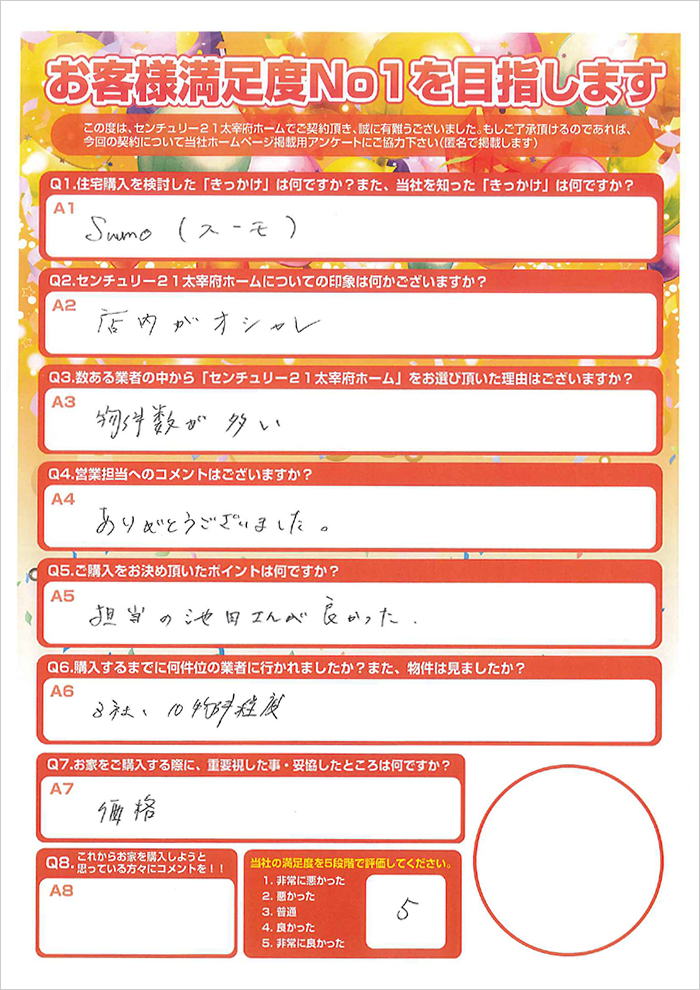 お客様満足度No1を目指します
この度は、センチュリー21太宰府ホームでご契約頂き、誠に有難うございました。もしご了承頂けるのであれば、
今回の契約について当社ホームページ掲載用アンケートにご協力下さい（匿名で掲載します）
Q1.住宅購入を検討した「きっかけ」は何ですか？また、当社を知った「きっかけ」は何ですか？
A1
Suumo（スーモ）
Q2.センチュリー21太宰府ホームについての印象は何かございますか？
A2
店内がオシャレ
Q3.数ある業者の中から「センチュリー21太宰府ホーム」をお選び頂いた理由はございますか？
A3
物件数が多い
Q4.営業担当へのコメントはございますか？
A4
ありがとうございました。
Q5.ご購入をお決め頂いたポイントは何ですか？
A5
担当の池田さんが良かった.
Q6.購入するまでに何件位の業者に行かれましたか？また、物件は見ましたか？
A6
3社、10物件程度
Q7.お家をご購入する際に、重要視した事・妥協したところは何ですか？
A7
価格
Q8.これからお家を購入しようと
思っている方々にコメントを！！
A8
当社の満足度を5段階で評価してください。
1. 非常に悪かった
2. 悪かった
3. 普通
4. 良かった
5. 非常に良かった
5